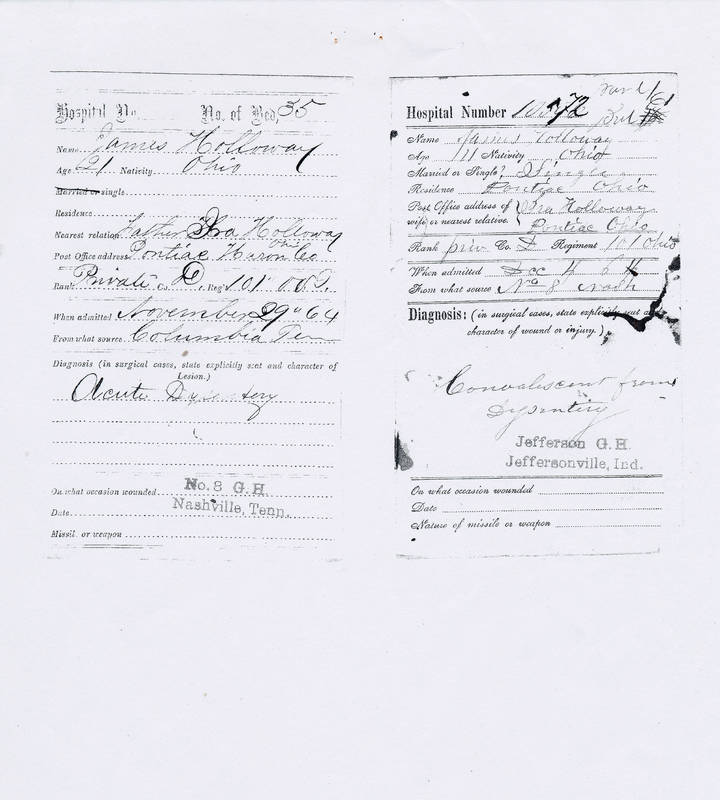 Hospital No. No. of Bed, 35
Name James Holloway
Age 21 Nativity Ohio
Married or single
Residence
Nearest relation Father Ira Holloway
Post Office address Pontiac Huron Co Ohio
Rank Private Co D, Reg't 101" O.V.I.
When admitted November 29" 64
From what source Columbia Ten
Diagnosis (in surgical cases, state explicitly seat and character of
Lesion.)
Acute Dysentery
On what occasion wounded
No. 8 G.H.
Nashville, Tenn.
Date
Missil. or weapon
Ward
Hospital Number
Name James Holloway
Age Nativity Ohio
Married or Single? Single
Residence Pontiac Ohio
Post Office address of
wife, or nearest relative.
Ira Holloway
Pontiac Ohio
Rank priv Co. D Regiment 101 Ohio
When admitted Dec 4 64
From what source No 8 Nash
Diagnosis: (in surgical cases, state explicitly seat and
character of wound or injury.)
Convalescent from
Dysentery
Jefferson G.H.
Jeffersonville, Ind.
On what occasion wounded
Date
Nature of missile or weapon